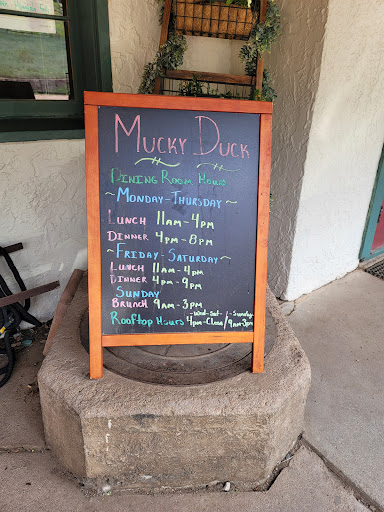 Mucky Duck
Dining Room Hours
~Monday-Thursday~
Lunch 11am-4pm
Dinner 4pm-8pm
~Friday-Saturday~
Lunch 11am-4pm
Dinner 4pm-9pm
Sunday
Brunch 9am-3pm
-Wed-Sat-/-Sunday-
Rooftop Hours 4pm-Close/9am-3pm